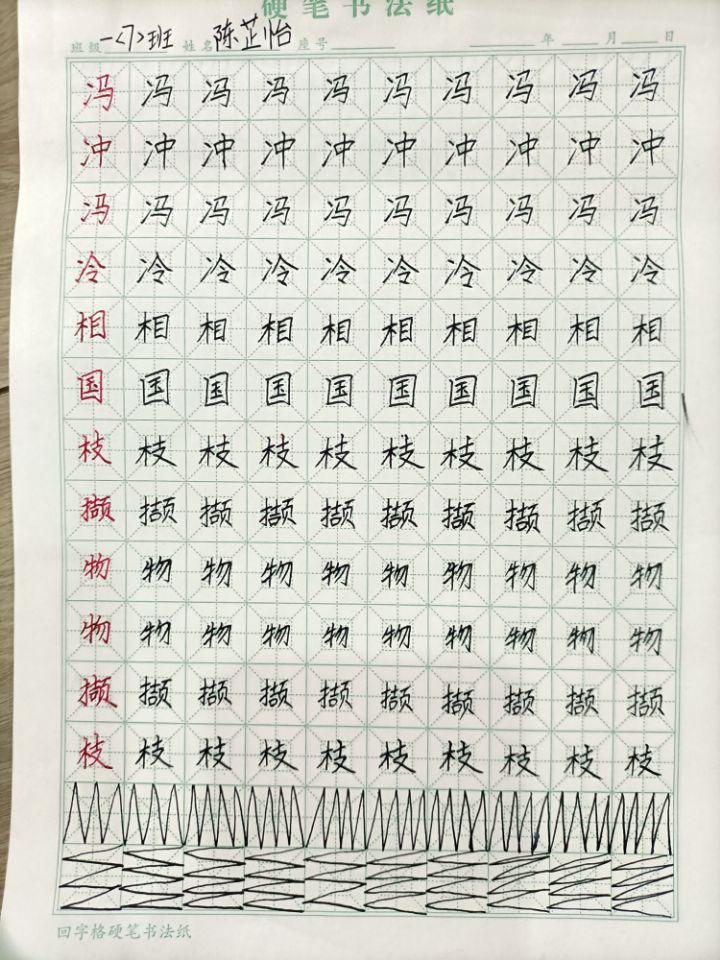 硬笔书法纸
班级 一<7>班 姓名 陈芷怡 座号 年 月 日
冯 冯 冯 冯 冯 冯 冯 冯 冯 冯
冲 冲 冲 冲 冲 冲 冲 冲 冲 冲
冯 冯 冯 冯 冯 冯 冯 冯 冯 冯
冷 冷 冷 冷 冷 冷 冷 冷 冷 冷
相 相 相 相 相 相 相 相 相 相
国 国 国 国 国 国 国 国 国 国
枝 枝 枝 枝 枝 枝 枝 枝 枝 枝
撷 撷 撷 撷 撷 撷 撷 撷 撷 撷
物 物 物 物 物 物 物 物 物 物
物 物 物 物 物 物 物 物 物 物
撷 撷 撷 撷 撷 撷 撷 撷 撷 撷
枝 枝 枝 枝 枝 枝 枝 枝 枝 枝
回字格硬笔书法纸